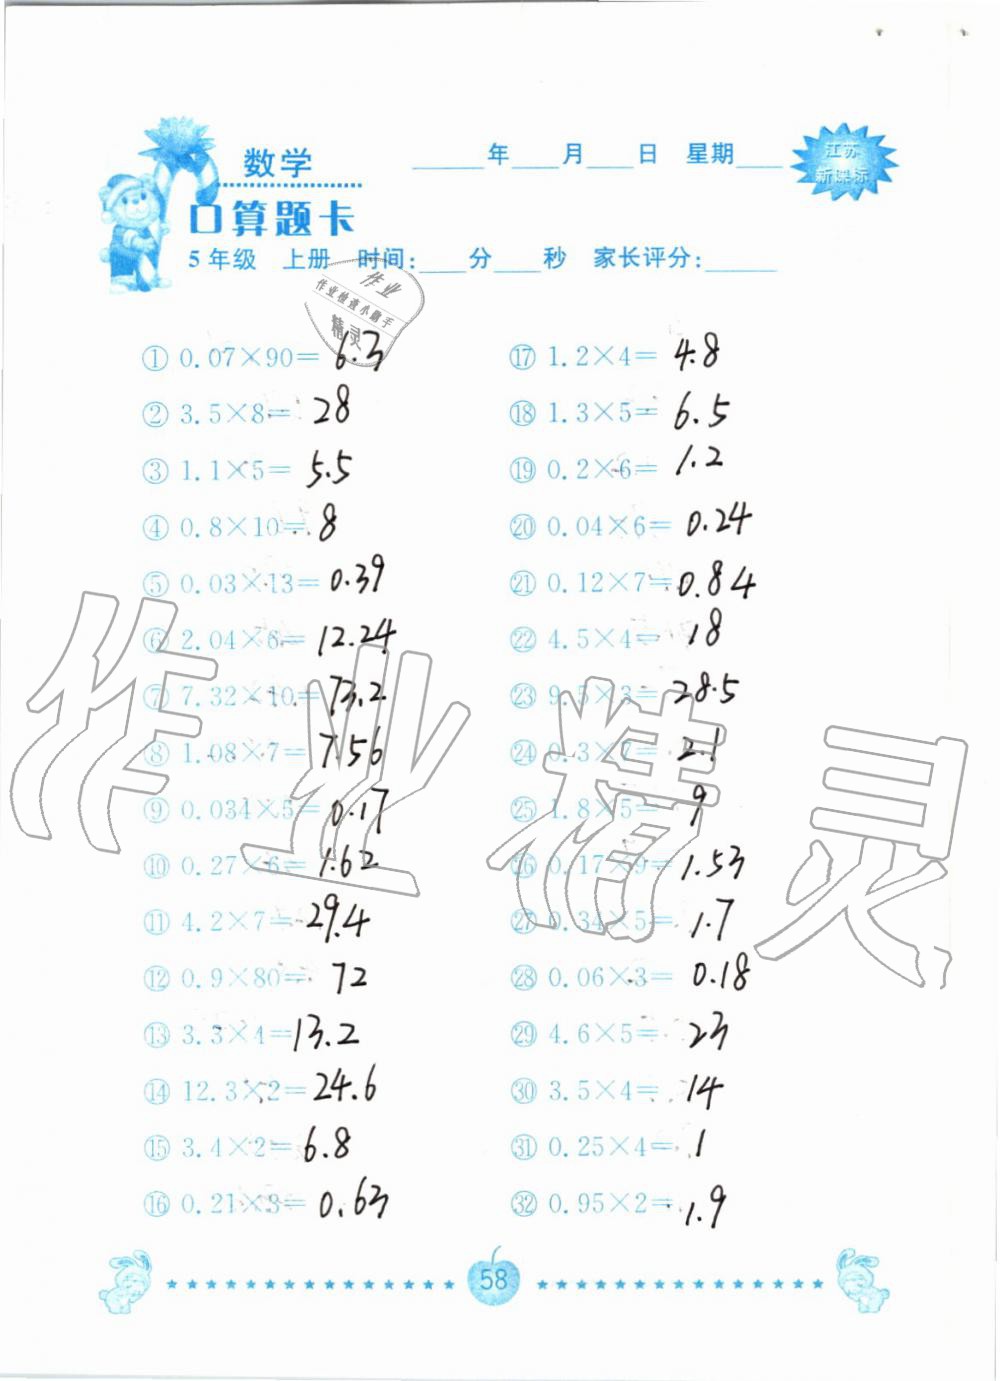 数学
____年____月____日 星期____
江苏
新课标
口算题卡
5年级 上册 时间:____分____秒 家长评分:____
作业
作业检查小帮手
精灵
① 0.07×90= 6.3
② 3.5×8= 28
③ 1.1×5= 5.5
④ 0.8×10= 8
⑤ 0.03×13= 0.39
⑥ 2.04×6= 12.24
⑦ 7.32×10= 73.2
⑧ 1.08×7= 7.56
⑨ 0.034×5= 0.17
⑩ 0.27×6= 1.62
⑪ 4.2×7= 29.4
⑫ 0.9×80= 72
⑬ 3.3×4= 13.2
⑭ 12.3×2= 24.6
⑮ 3.4×2= 6.8
⑯ 0.21×3= 0.63
⑰ 1.2×4= 4.8
⑱ 1.3×5= 6.5
⑲ 0.2×6= 1.2
⑳ 0.04×6= 0.24
㉑ 0.12×7= 0.84
㉒ 4.5×4= 18
㉓ 9.5×3= 28.5
㉔ 0.3×7= 2.1
㉕ 1.8×5= 9
㉖ 0.17×9= 1.53
㉗ 0.34×5= 1.7
㉘ 0.06×3= 0.18
㉙ 4.6×5= 23
㉚ 3.5×4= 14
㉛ 0.25×4= 1
㉜ 0.95×2= 1.9
作业精灵
58